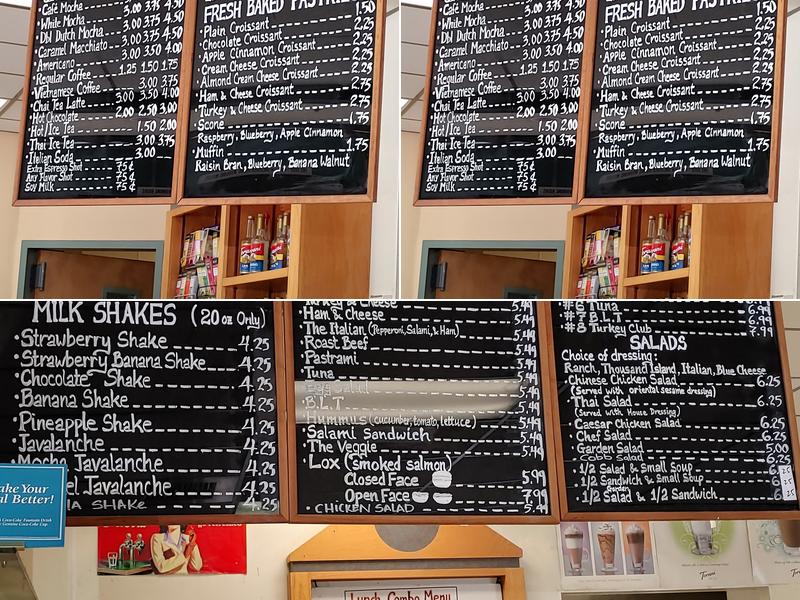 Café Mocha 3.00 3.75 4.50
White Mocha 3.00 3.75 4.50
DN Dutch Mocha 3.00 3.75 4.50
Caramel Macchiato 3.00 3.75 4.50
Americano 3.00 3.50 4.00
Regular Coffee 1.25 1.50 1.75
Vietnamese Coffee 3.00 3.75
Chai Tea Latte 3.00 3.50 4.00
Hot Chocolate 2.00 2.50 3.00
Hot/Ice Tea 1.50 2.00
Thai Ice Tea 3.00 3.75
Italian Soda 3.00
Extra Espresso Shot 75¢
Any Flavor Shot 75¢
Soy Milk 75¢
FRESH BAKED PASTRIES
Plain Croissant 1.50
Chocolate Croissant 2.25
Apple Cinnamon Croissant 2.25
Cream Cheese Croissant 2.25
Almond Cream Cheese Croissant 2.25
Ham & Cheese Croissant 2.75
Turkey & Cheese Croissant 2.75
Scone 1.75
Raspberry, Blueberry, Apple Cinnamon
Muffin 1.75
Raisin Bran, Blueberry, Banana Walnut
Torani
Café Mocha 3.00 3.75 4.50
White Mocha 3.00 3.75 4.50
DN Dutch Mocha 3.00 3.75 4.50
Caramel Macchiato 3.00 3.75 4.50
Americano 3.00 3.50 4.00
Regular Coffee 1.25 1.50 1.75
Vietnamese Coffee 3.00 3.75
Chai Tea Latte 3.00 3.50 4.00
Hot Chocolate 2.00 2.50 3.00
Hot/Ice Tea 1.50 2.00
Thai Ice Tea 3.00 3.75
Italian Soda 3.00
Extra Espresso Shot 75¢
Any Flavor Shot 75¢
Soy Milk 75¢
FRESH BAKED PASTRIES
Plain Croissant 1.50
Chocolate Croissant 2.25
Apple Cinnamon Croissant 2.25
Cream Cheese Croissant 2.25
Almond Cream Cheese Croissant 2.25
Ham & Cheese Croissant 2.75
Turkey & Cheese Croissant 2.75
Scone 1.75
Raspberry, Blueberry, Apple Cinnamon
Muffin 1.75
Raisin Bran, Blueberry, Banana Walnut
Torani
MILK SHAKES (20 oz Only)
Strawberry Shake 4.25
Strawberry Banana Shake 4.25
Chocolate Shake 4.25
Banana Shake 4.25
Pineapple Shake 4.25
Javalanche 4.25
Mocha Javalanche 4.25
el Javalanche 4.25
la SHAKE 4.25
ake Your
al Better!
Turkey & Cheese 5.49
Ham & Cheese 5.49
The Italian (Pepperoni, Salami, & Ham) 5.49
Roast Beef 5.49
Pastrami 5.49
Tuna 5.49
Egg Salad
B.L.T
Hummus (cucumber, tomato, lettuce) 5.49
Salami Sandwich 5.49
The Veggie 5.49
Lox (smoked salmon)
Closed Face 5.99
Open Face 7.99
CHICKEN SALAD 5.49
#6 Tuna 6.99
#7 B.L.T 6.99
#8 Turkey Club 7.99
SALADS
Choice of dressing:
Ranch, Thousand Island, Italian, Blue Cheese
Chinese Chicken Salad 6.25
(Served with oriental sesame dressing)
Thai Salad 6.25
(Served with House Dressing)
Caesar Chicken Salad 6.25
Chef Salad 6.25
Garden Salad 5.00
Cobb Salad 6.25
1/2 Salad & Small Soup 6.25
1/2 Sandwich & Small Soup 6.25
Garden
1/2 Salad & 1/2 Sandwich 6.
Lunch Combo Menu
Torani